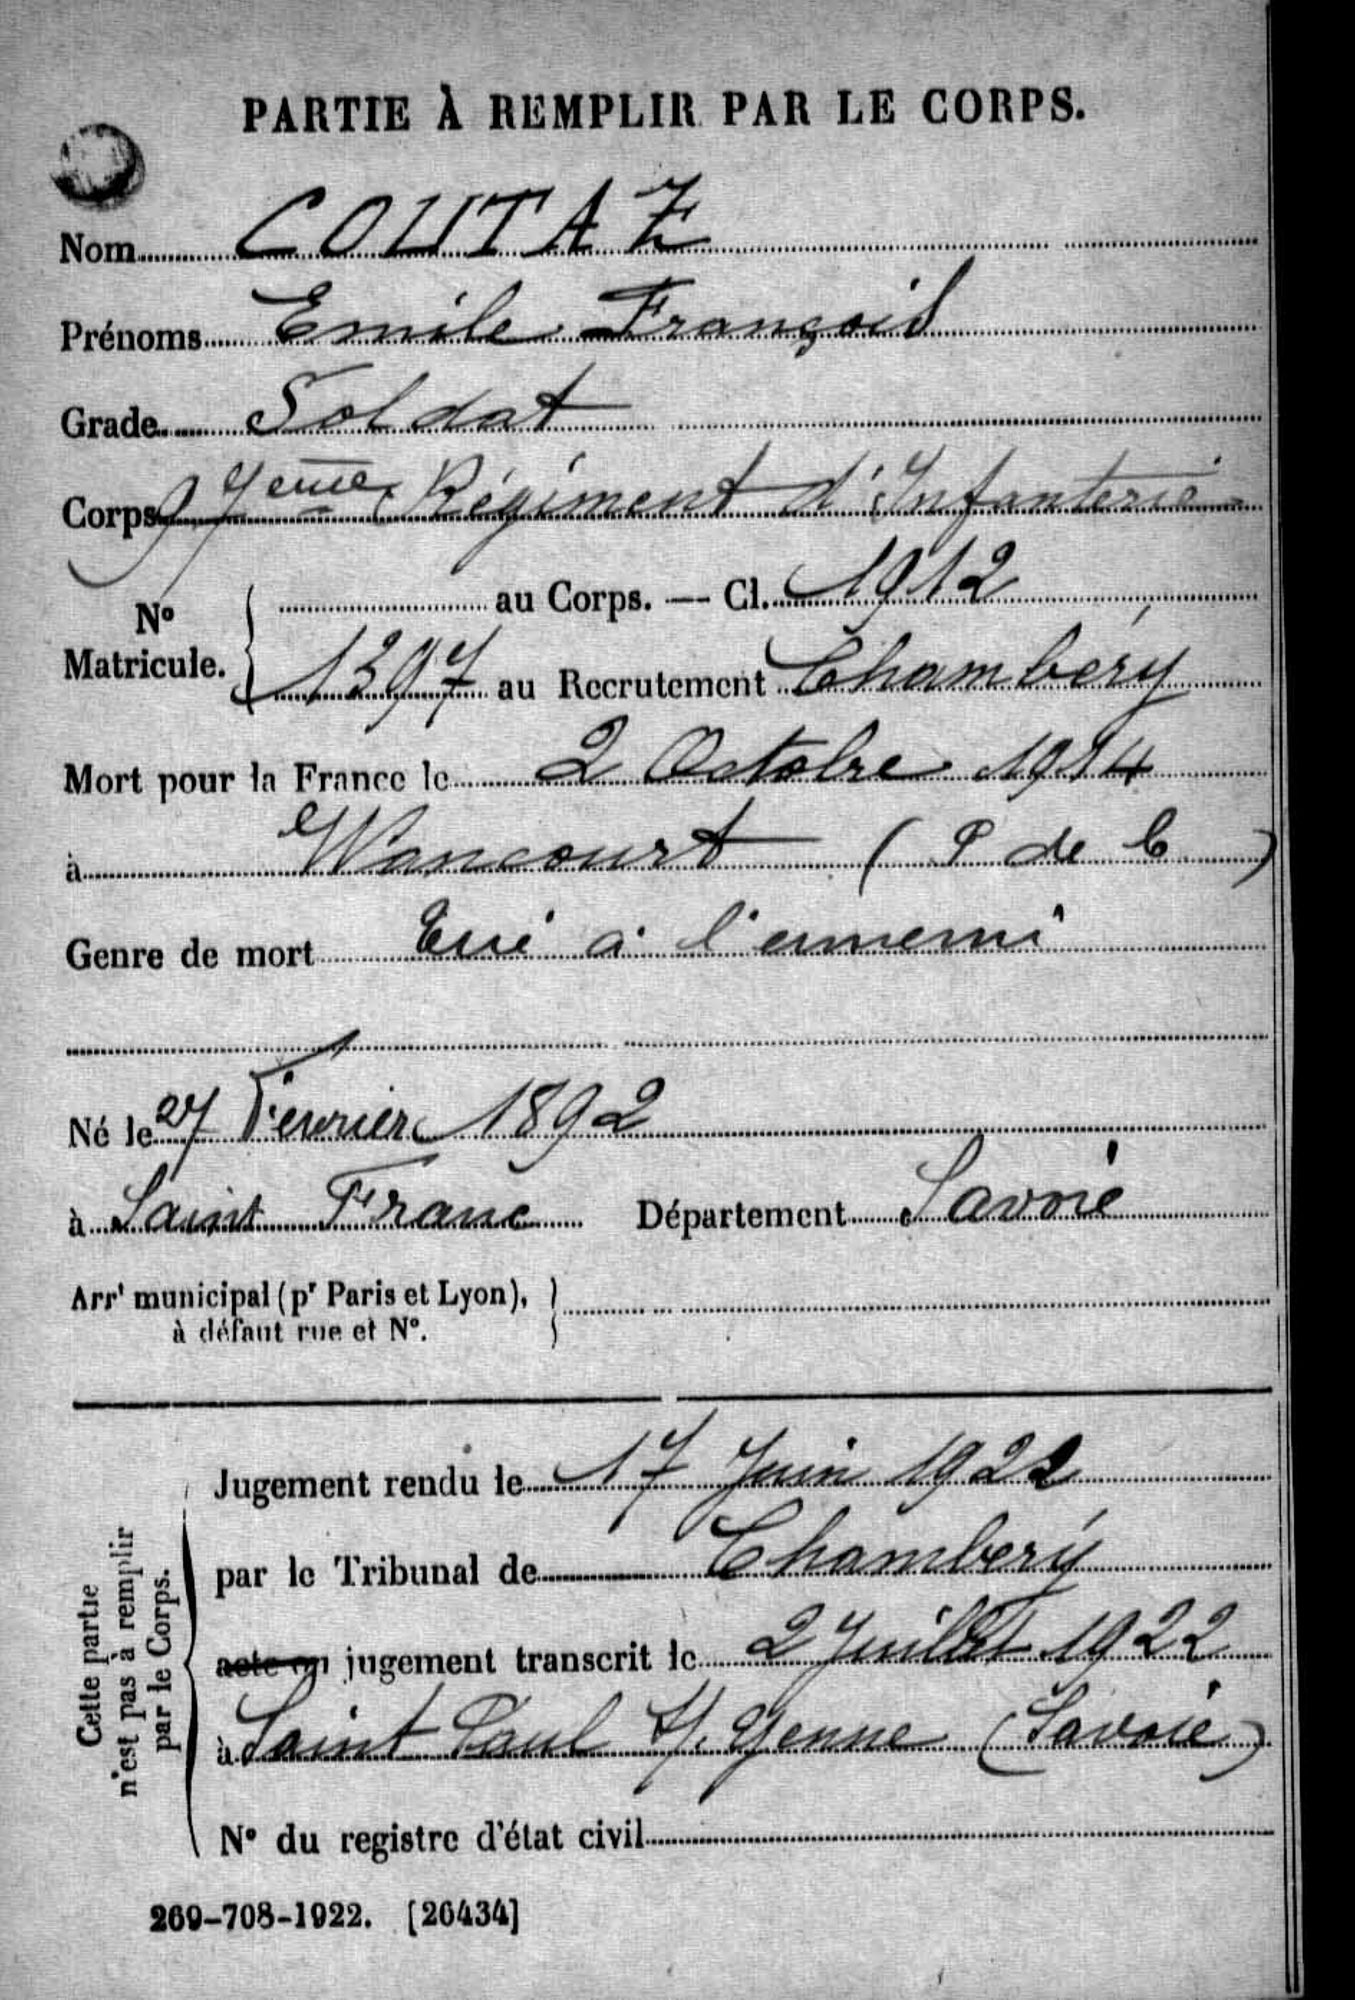 PARTIE À REMPLIR PAR LE CORPS.
Nom COUTAZ
Prénoms Emile François
Grade Soldat
Corps 97eme Régiment d'Infanterie
N° Matricule. au Corps. — Cl. 1912
1397 au Recrutement Chambéry
Mort pour la France le 2 Octobre 1914
à Wancourt (P de C)
Genre de mort Tué à l'ennemi
Né le 27 Février 1892
à Saint Franc Département Savoie
Arrt municipal (pr Paris et Lyon),
à défaut rue et N°.
Cette partie
n'est pas à remplir
par le Corps.
Jugement rendu le 17 Juin 1922
par le Tribunal de Chambéry
acte ou jugement transcrit le 2 Juillet 1922
à Saint Paul s/. Yenne (Savoie)
N° du registre d'état civil
269-708-1922. [26434]